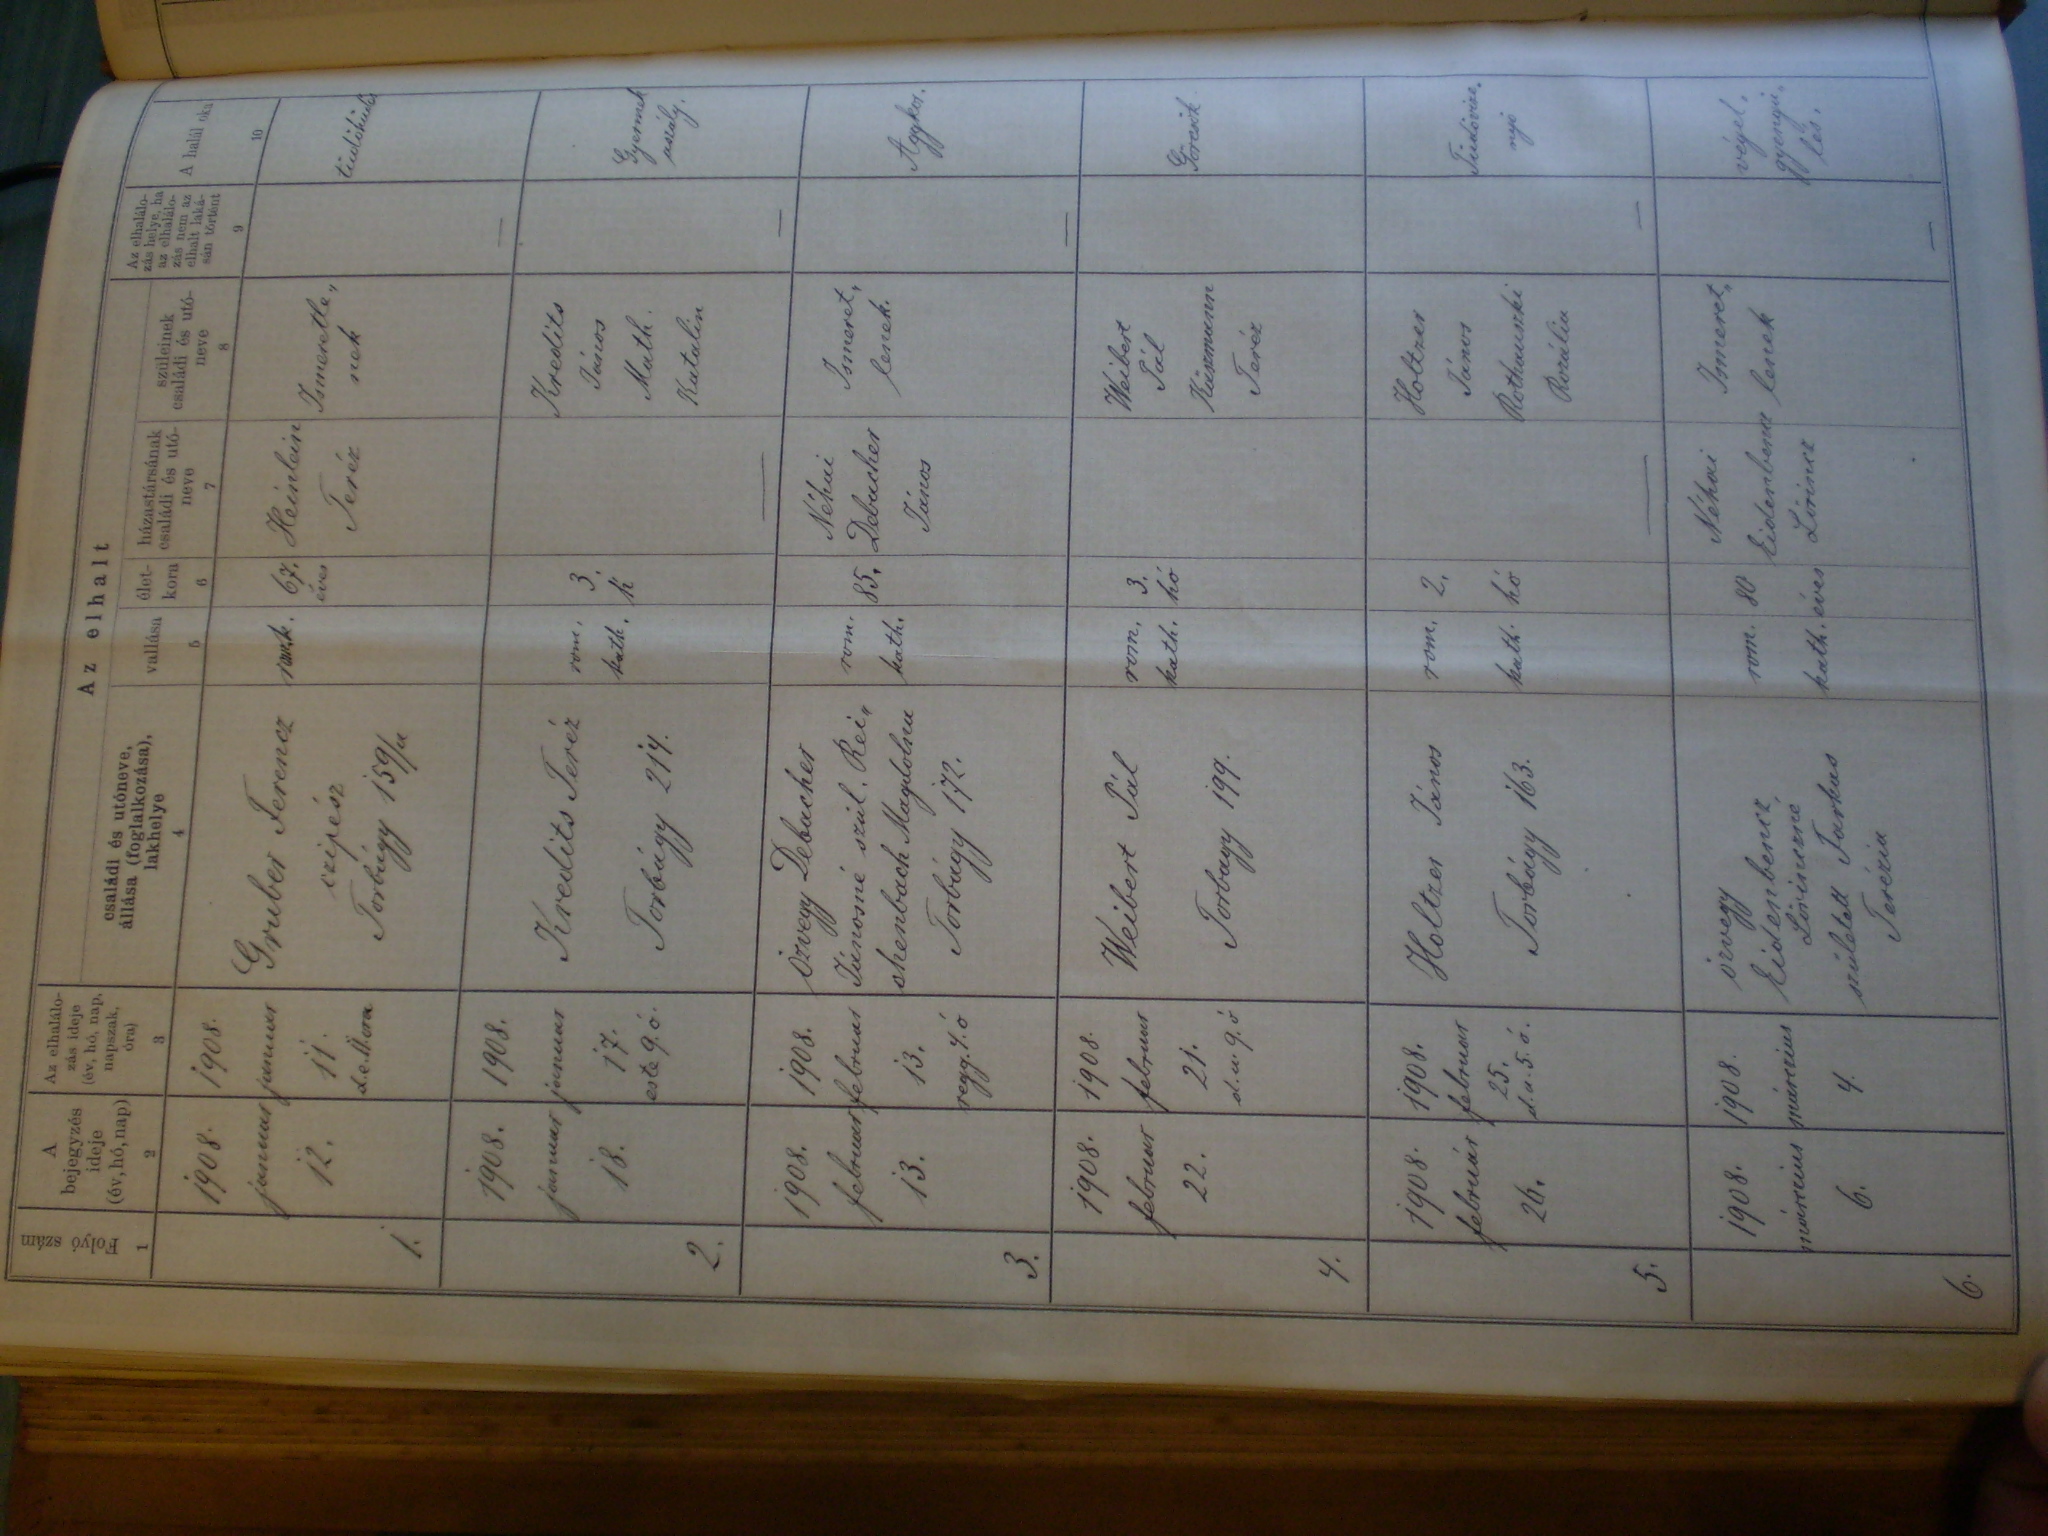 Az elhalt
Folyó szám
A
bejegyzés
ideje
(év, hó, nap)
Az elhalálo-
zás ideje
(év, hó, nap,
napszak,
óra)
családi és utóneve,
állása (foglalkozása),
lakhelye
vallása
élet-
kora
házastársának
családi és utó-
neve
szüleinek
családi és utó-
neve
Az elhalálo-
zás helye, ha
az elhalálo-
zás nem az
elhalt laká-
sán történt
A halál oka
1
2
3
4
5
6
7
8
9
10
1.
1908.
januar
12.
1908.
januar
11.
Gruber Ferencz
czipész
Torbágy 159/a
67.
éves
Heinlein
Teréz
Ismeretle„
nek
2.
1908.
januar
18.
1908.
januar
17.
este 9. ó.
Kredits Teréz
Torbágy 214.
rom.
kath.
3.
h
Kredits
János
Math.
Katalin
—
—
Gyermek
aszály.
3.
1908.
februar
13.
1908.
februar
13.
regg. 4. ó
özvegy Debacher
Jánosné szül. Rei„
chenbach Magdolna
Torbágy 172.
rom.
kath.
85.
Néhai
Debacher
János
Ismeret„
lenek.
—
Aggkor.
4.
1908.
februar
22.
1908.
februar
21.
d.u. 9. ó
Weibert Pál
Torbagy 199.
rom.
kath.
3.
hó
Weibert
Pál
Käszmann
Teréz
—
Görcsök.
5.
1908.
február
26.
1908.
februar
25.
d.u. 5. ó.
Holtzer János
Torbágy 163.
rom.
kath.
2.
hó
—
Holtzer
János
Rothauszki
Rozália
—
6.
1908.
március
6.
1908.
március
4.
özvegy
Eidenbencz
Lőrinczné
született Farkas
Terézia
rom.
kath.
80
éves
Néhai
Eidenbenz
Lőrincz
Ismeret„
lenek
—
végel„
gyengü„
lés.